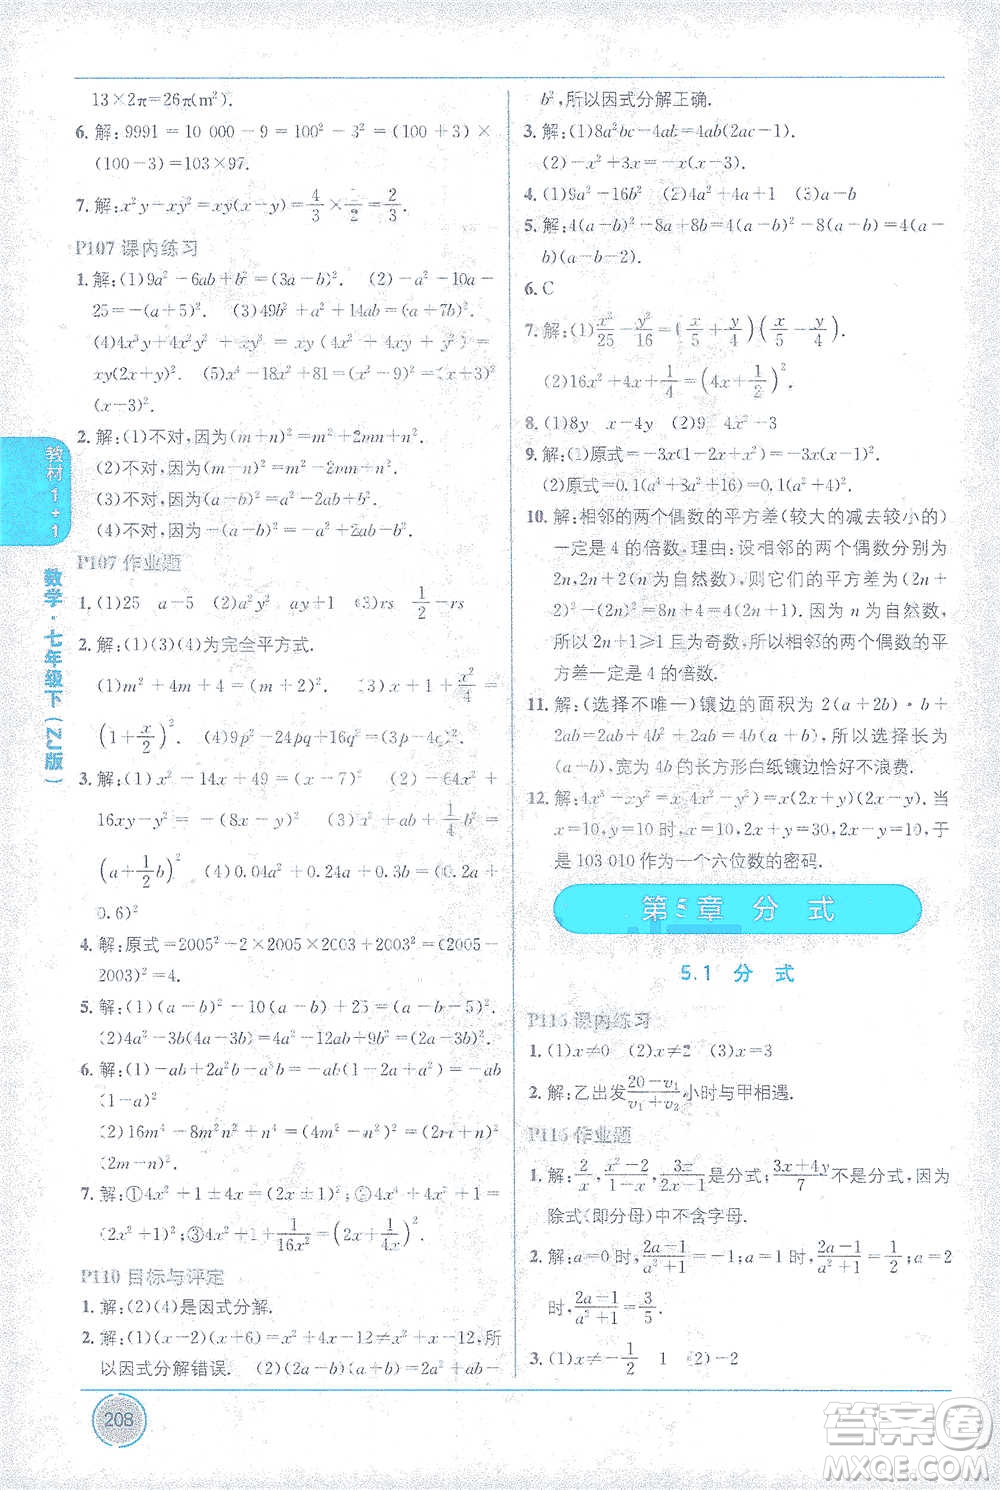 13×2π=26π(m²).
6. 解:9991=10 000-9=100²-3²=(100+3)×
(100-3)=103×97.
7. 解:x²y-xy²=xy(x-y)=4/3×1/2=2/3.
P107 课内练习
1. 解:(1)9a²-6ab+b²=(3a-b)² (2)-a²-10a-
25=-(a+5)². (3)49b²+a²+14ab=(a+7b)².
(4)4x³y+4x²y²+xy³=xy(4x²+4xy+y²)=
xy(2x+y)². (5)x⁴-18x²+81=(x²-9)²=(x+3)²
(x-3)².
2. 解:(1)不对,因为(m+n)²=m²+2mn+n².
(2)不对,因为
(3)不对,因为
(4)不对,因为
P107 作业题
1. (1)25 a-5 (2)a²y² ay+1 (3)rs 1/2-rs
2. 解:(1)(3)(4)为完全平方式.
(1)m²+4m+4=(m+2)² (3)1+x+x²/4=
(1+x/2)² (4)9p²-24pq+16q²=(3p-4q)²
3. 解:(1)x²-14x+49=(x-7)² (2)-64x²+
16xy-y²=-(8x-y)² (3)a²+ab+1/4b²=
(a+1/2b)² (4)0.04a²+0.24a+0.36=(0.2a+
0.6)²
4. 解:原式=2005²-2×2005×2003+2003²=(2005-
2003)²=4.
5. 解:(1)(a-b)²
(2)4a²-3b(4a-3b)=4a²-12ab+9b²=(2a-3b)²
6. 解:(1)
(2)16m⁴-8m²n²+n⁴=(4m²-n²)²=(2m+n)²
(2m-n)².
7. 解:①4x²+1±4x=(2x±1)² ②4x⁴+4x²+1=
(2x²+1)²;③4x²+1+1/16x²=(2x+1/4x)².
P110 目标与评定
1. 解:(2)(4)是因式分解.
2. 解:(1)(x-2)(x+6)=x²+4x-12≠x²+x-12,所
以因式分解错误. (2)(2a-b)(a+b)=2a²+ab-
b²,所以因式分解正确.
3. 解:(1)8a²bc-4ab=4ab(2ac-1).
(2)-x²+3x=-x(x-3).
4. (1)9a²-16b² (2)4a²+4a+1 (3)a-b
5. 解:4(a-b)²-8(b-a)=4(a-b)²+8(a-b)=4(a-
b)(a-b+2).
6. C
7. 解:(1)x²/25-y²/16=(x/5+y/4)(x/5-y/4).
(2)16x²+4x+1/4=(4x+1/2)².
8. (1)2(x-1)² (2)4x-3
9. 解:(1)原式=
(2)原式=0.1(4.6²-5.4²)=0.1×
10. 解:相邻的两个偶数的平方差(较大的减去较小的)
一定是 4 的倍数,理由:设相邻的两个偶数为
2n,2n+2(n为自然数),则它们的平方差为(2n+
2)²-(2n)²=8n+4=4(2n+1).因为 n 为自然数,
所以 2n+1≥1 且为奇数,所以相邻的两个偶数的平方
差一定是 4 的倍数.
11. 解:(选择不唯一)镶边的面积为 2(a+2b)·b+
2ab=2ab+4b²+2ab=4ab+4b²=4b(a+b),选长为
(a+b),宽为 4b 的长方形白纸镶边恰好不浪费.
12. 解:4x³-xy²=x(4x²-y²)=x(2x+y)(2x-y).当
x=10,y=10时,x=10,2x+y=30,2x-y=10,于
是 103 010 作为一个六位数的密码.
第5章 分 式
5.1 分 式
P115 课内练习
1. (1)x≠0 (2)x≠2 (3)x=3
2. 解:乙出发(20-v₁)/(v₁+v₂)小时与甲相遇.
P115 作业题
1. 解:2/x,(x²-2)/x,3x/(2x-1)是分式,(3x+4y)/7不是分式,因为
除式(即分母)中不含字母.
2. 解:a=0时,(2a-1)/(a²+1)=-1;a=1时,(2a-1)/(a²+1)=1/2;a=2
时,(2a-1)/(a²+1)=3/5.
3. (1)x≠-1/3 1 (2)-2
教材1+1
数学·七年级下(ZJ版)
208
答案圈
MXQE.COM